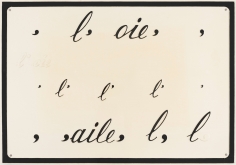 , l, oie, ,
, l' l' l' ,
, ,aile, l, l